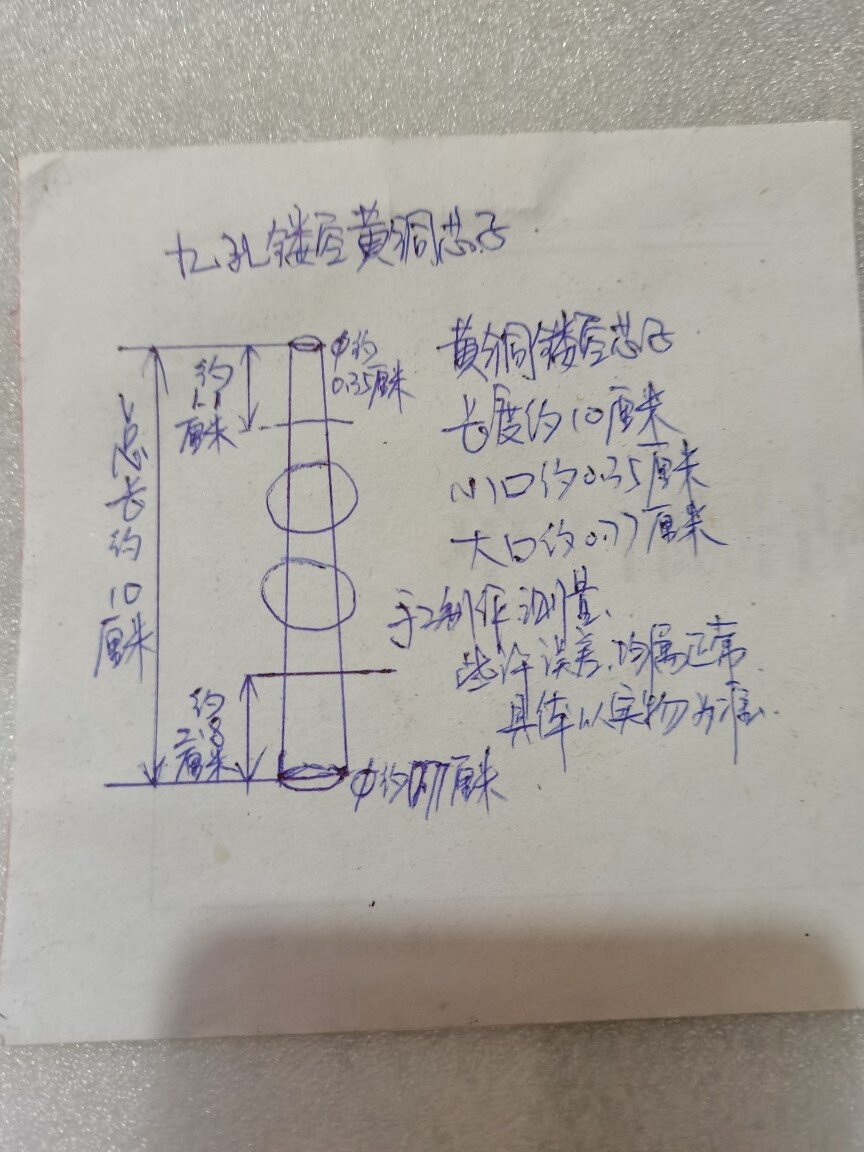 九孔镂空黄铜芯子
φ约
0.35厘米
约
1.1
厘米
总长约10厘米
约
2.8
厘米
φ约0.77厘米
黄铜镂空芯子
长度约10厘米
小口约0.35厘米
大口约0.77厘米
手工制作测量、
些许误差、均属正常
具体以实物为准.